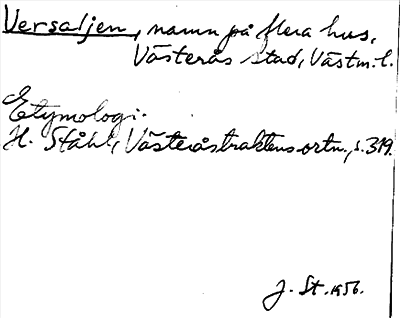 Versaljen, namn på flera hus,
Västerås stad, Västm. l.
Etymologi.
H. Ståhl, Västeråstraktens ortn., s. 319.
J. St. 1956.